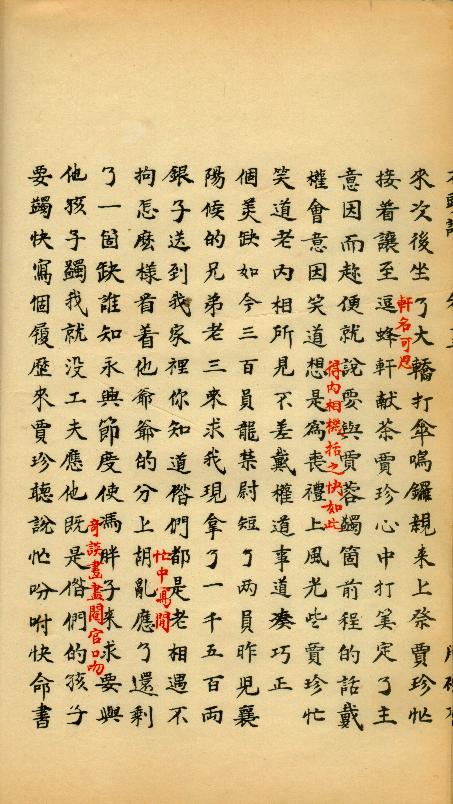 來次後坐了大轎打傘鳴鑼親来上祭賈珍忙
軒名可思
接着讓至逗蜂軒献茶賈珍心中打筭定了主
意因而趂便就說要與賈蓉蠲箇前程的話戴
得内相機括之快如此
權會意因笑道想是為喪禮上風光些賈珍忙
笑道老内相所見不差戴權道事道凑巧正
個美缺如今三百員龍禁尉短了兩員昨児襄
陽候的兄弟老三来求我現拿了一千五百両
銀子送到我家裡你知道偺們都是老相遇不
忙中寫閒
拘怎麽樣看着他爺爺的分上胡亂應了還剩
了一箇缺誰知永興節度使馮胖子来求要與
奇談畫盡閹官口吻
他孩子蠲我就没工夫應他既是偺們的孩子
要蠲快寫個履歷来賈珍聴說忙吩咐快命書